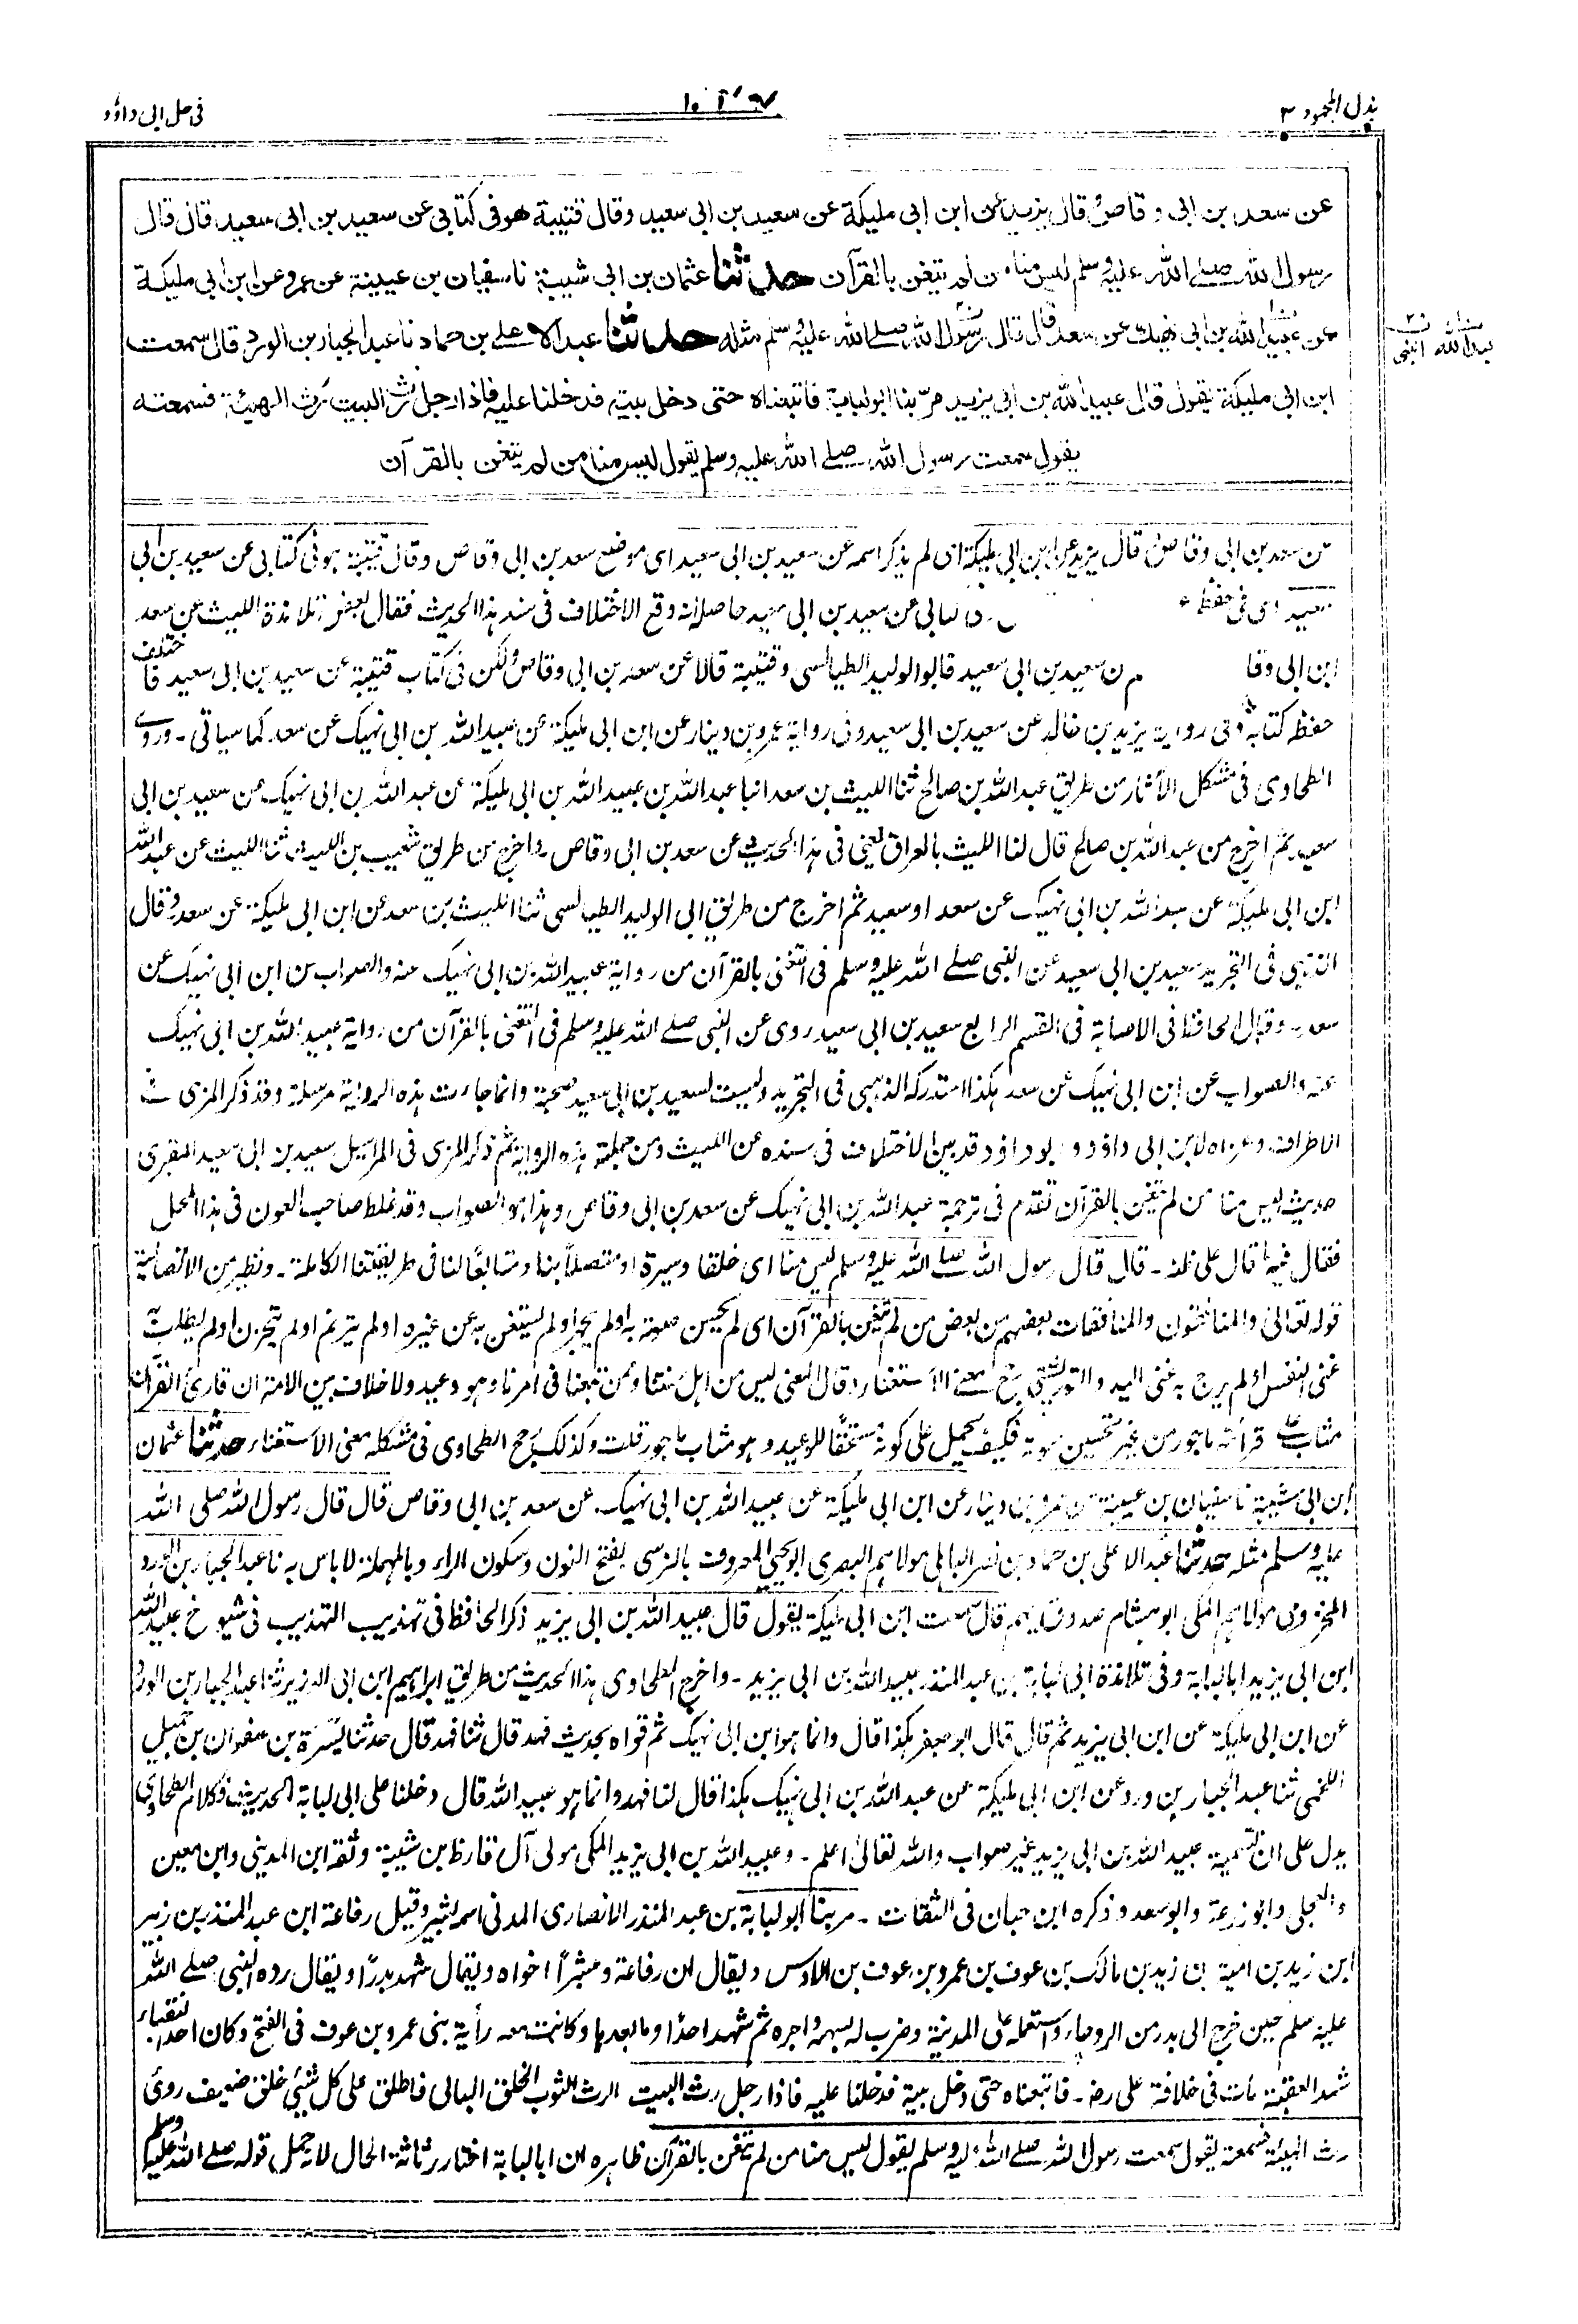 بذل المجهود ٣
فى حل ابى داؤد
عن سعد بن ابى وقاص قال يزيد عن ابن ابى مليكة عن سعيد بن ابى سعيد وقال قتيبة هو فى كتابى عن سعيد بن ابى سعيد قال قال
رسول الله صلے الله عليه وسلم ليس منا من لم يتغن بالقرآن حدثنا عثمان بن ابى شيبة نا سفيان بن عيينة عن عمرو عن ابن ابى مليكة
عن عبيد الله بن ابى نهيك عن سعد قال قال رسول الله صلے الله عليه وسلم مثله حدثنا عبد الاعلے بن حماد نا عبد الجبار بن الورد قال سمعت
ابن ابى مليكة يقول قال عبيد الله بن ابى يزيد مرّ بنا ابو لبابة فاتبعناه حتى دخل بيته فدخلنا عليه فاذا رجل رث البيت رث الهيئة فسمعته
يقول سمعت رسول الله صلے الله عليه وسلم يقول ليس منا من لم يتغن بالقرآن
عن سعد بن ابى وقاص قال يزيد عن ابن ابى مليكة اى لم يذكر اسمه عن سعيد بن ابى سعيد اى موضع سعد بن ابى وقاص وقال قتيبة هو فى كتابى عن سعيد بن ابى
سعيد اى فى حفظ عن سعيد بن ابى سعيد حاصله انه وقع الاختلاف فى سند هذا الحديث فقال بعض تلامذة الليث عن سعد
ابن ابى وقا ن سعيد بن ابى سعيد فابو الوليد الطيالسى وقتيبة قالا عن سعد بن ابى وقاص ولكن فى كتاب قتيبة عن سعيد بن ابى سعيد فاختلف
حفظه كتابه وفى رواية يزيد بن خالد عن سعيد بن ابى سعيد وفى رواية عمرو بن دينار عن ابن ابى مليكة عن عبيد الله بن ابى نهيك عن سعد كما سياتى ۔ وروے
الطحاوى فى مشكل الآثار من طريق عبد الله بن صالح ثنا الليث بن سعد انبا عبد الله بن عبيد الله بن ابى مليكة عن عبد الله بن ابى نهيك عن سعيد بن ابى
سعيد ثم اخرج من عبد الله بن صالح قال لنا الليث بالعراق يعنى فى هذا الحديث عن سعد بن ابى وقاص ۔ واخرج من طريق شعيب بن الليث ثنا الليث عن عبد الله
ابن ابى مليكة عن عبد الله بن ابى نهيك عن سعد او سعيد ثم اخرج من طريق ابى الوليد الطيالسى ثنا الليث بن سعد عن ابن ابى مليكة عن سعد وقال
الذهبى فى التجريد سعيد بن ابى سعيد عن النبى صلے الله عليه وسلم فى التغنى بالقرآن من رواية عبيد الله بن ابى نهيك عنه والصواب عن ابن ابى نهيك عن
سعد ۔ وقال الحافظ فى الاصابة فى القسم الرابع سعيد بن ابى سعيد روى عن النبى صلے الله عليه وسلم فى التغنى بالقرآن من رواية عبيد الله بن ابى نهيك
عنه والصواب عن ابن ابى نهيك عن سعد هكذا استدركه الذهبى فى التجريد وليست لسعيد بن ابى سعيد صحبة وانما جاءت هذه الرواية مرسلة وقد ذكر المزى فى
الاطراف وعزاه لابن ابى داؤد وابو داؤد قد بين الاختلاف فى سنده عن الليث ومن جملته هذه الرواية ثم ذكر المزى فى المراسيل سعيد بن ابى سعيد المقبرى
حديث ليس منا من لم يتغن بالقرآن تقدم فى ترجمة عبد الله بن ابى نهيك عن سعد بن ابى وقاص وهذا هو الصواب وقد غلط صاحب العون فى هذا المحل
فقال فيه ما قال على ظنه ۔ قال قال رسول الله صلے الله عليه وسلم ليس منا اى خلقا وسيرة او متصلاً بنا ومتابعًا لنا فى طريقتنا الكاملة ۔ ونظيره من الاتصالية
قوله تعالىٰ والمنافقون والمنافقات بعضهم من بعض من لم يتغن بالقرآن اى لم يحسن صوته به او لم يجهر او لم يستغن به عن غيره او لم يترنم او لم يتحزن او لم يطلب به
غنى النفس او لم يرج به غنى اليد والتوربشتى رجح معنے الاستغناء وقال المعنى ليس من اهل سنتنا وممن تبعنا فى امرنا وهو وعيد ولا خلاف بين الامة ان قارئ القرآن
مثاب على قرأته ماجور من غير تحسين صوته فكيف يحمل على كونه مستحقًا للوعيد وهو مثاب ماجور قلت وكذلك رجح الطحاوى فى مشكله معنى الاستغناء حدثنا عثمان
ابن ابى شيبة نا سفيان بن عيينة عن عمرو بن دينار عن ابن ابى مليكة عن عبيد الله بن ابى نهيك عن سعد بن ابى وقاص قال قال رسول الله صلى الله
عليه وسلم مثله حدثنا عبد الاعلى بن حماد بن نصر الباهلى مولاهم البصرى ابو يحيى المعروف بالنرسى بفتح النون وسكون الراء وبالمهملة لا باس به نا عبد الجبار بن الورد
المخزومى مولاهم المكى ابو هشام صدوق يهم قال سمعت ابن ابى مليكة يقول قال عبيد الله بن ابى يزيد ذكر الحافظ فى تهذيب التهذيب فى شيوخ عبيد الله
ابن ابى يزيد ابا لبابة وفى تلامذة ابى لبابة بن عبد المنذر عبيد الله بن ابى يزيد ۔ واخرج الطحاوى هذا الحديث من طريق ابراهيم ابن ابى الوزير ثنا عبد الجبار بن الورد
عن ابن ابى مليكة عن ابن ابى يزيد ثم قال قال ابو جعفر هكذا قال وانما هو ابن ابى نهيك ثم قواه بحديث فهد قال ثنا فهد قال حدثنا يسرة بن صفوان بن جميل
اللخمى ثنا عبد الجبار بن ورد عن ابن ابى مليكة عن عبد الله بن ابى نهيك هكذا قال لنا فهد وانما هو عبيد الله قال دخلنا على ابى لبابة الحديث وكلام الطحاوى
يدل على ان تسمية عبيد الله بن ابى يزيد غير صواب والله تعالىٰ اعلم ۔ وعبيد الله بن ابى يزيد المكى مولى آل قارظ بن شيبة وثقه ابن المدينى وابن معين
والعجلى وابو زرعة وابو سعد وذكره ابن حبان فى الثقات ۔ مر بنا ابو لبابة بن عبد المنذر الانصارى المدنى اسمه بشير وقيل رفاعة ابن عبد المنذر بن زبير
ابن زيد بن امية بن زيد بن مالك بن عوف بن عمرو بن عوف بن الاوس ويقال ان رفاعة ومبشرًا اخواه ويقال شهد بدرًا ويقال رده النبى صلے الله
عليه وسلم حين خرج الى بدر من الروحاء واستعمله على المدينة وضرب له بسهمه واجره ثم شهد احدًا وما بعدها وكانت معه رأية بنى عمرو بن عوف فى الفتح وكان احد النقباء
شهد العقبة مات فى خلافة على رض ۔ فاتبعناه حتى دخل بيته فدخلنا عليه فاذا رجل رث البيت الرث الثوب الخلق البالى فاطلق على كل شئى خلق ضعيف روى
رث الهيئة فسمعته يقول سمعت رسول الله صلے الله عليه وسلم يقول ليس منا من لم يتغن بالقرآن ظاهره ان ابا لبابة اختار رثاثة الحال لاجل قوله صلے الله عليه وسلم